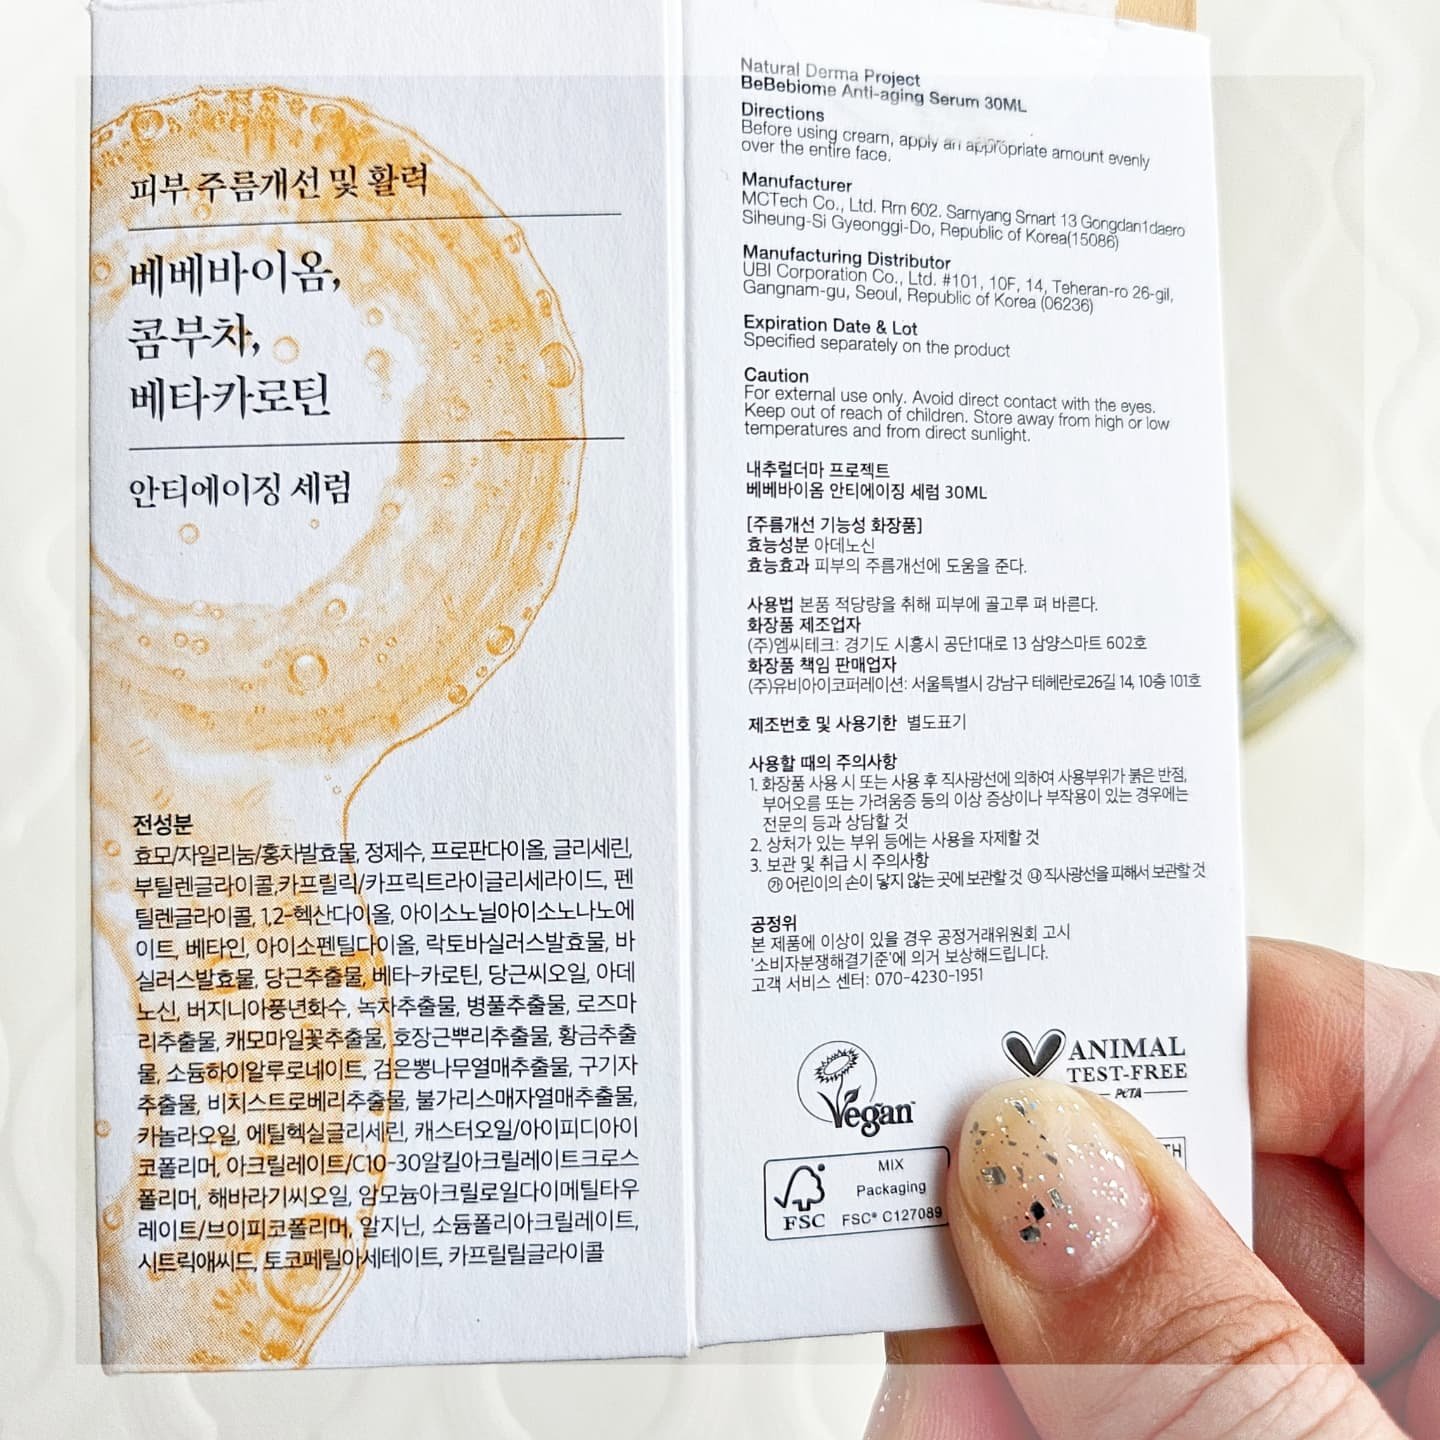 피부 주름개선 및 활력
베베바이옴,
콤부차,
베타카로틴
안티에이징 세럼
전성분
효모/자일리눔/홍차발효물, 정제수, 프로판다이올, 글리세린,
부틸렌글라이콜,카프릴릭/카프릭트라이글리세라이드, 펜
틸렌글라이콜, 1,2-헥산다이올, 아이소노닐아이소노나노에
이트, 베타인, 아이소펜틸다이올, 락토바실러스발효물, 바
실러스발효물, 당근추출물, 베타-카로틴, 당근씨오일, 아데
노신, 버지니아풍년화수, 녹차추출물, 병풀추출물, 로즈마
리추출물, 캐모마일꽃추출물, 호장근뿌리추출물, 황금추출
물, 소듐하이알루로네이트, 검은뽕나무열매추출물, 구기자
추출물, 비치스트로베리추출물, 불가리스매자열매추출물,
카놀라오일, 에틸헥실글리세린, 캐스터오일/아이피디아이
코폴리머, 아크릴레이트/C10-30알킬아크릴레이트크로스
폴리머, 해바라기씨오일, 암모늄아크릴로일다이메틸타우
레이트/브이피코폴리머, 알지닌, 소듐폴리아크릴레이트,
시트릭애씨드, 토코페릴아세테이트, 카프릴릴글라이콜
Natural Derma Project
BeBebiome Anti-aging Serum 30ML
Directions
Before using cream, apply an appropriate amount evenly
over the entire face.
Manufacturer
MCTech Co., Ltd. Rm 602. Samyang Smart 13 Gongdan1daero
Siheung-Si Gyeonggi-Do, Republic of Korea(15086)
Manufacturing Distributor
UBI Corporation Co., Ltd. #101, 10F, 14, Teheran-ro 26-gil,
Gangnam-gu, Seoul, Republic of Korea (06236)
Expiration Date & Lot
Specified separately on the product
Caution
For external use only. Avoid direct contact with the eyes.
Keep out of reach of children. Store away from high or low
temperatures and from direct sunlight.
내추럴더마 프로젝트
베베바이옴 안티에이징 세럼 30ML
[주름개선 기능성 화장품]
효능성분 아데노신
효능효과 피부의 주름개선에 도움을 준다.
사용법 본품 적당량을 취해 피부에 골고루 펴 바른다.
화장품 제조업자
(주)엠씨테크: 경기도 시흥시 공단1대로 13 삼양스마트 602호
화장품 책임 판매업자
(주)유비아이코퍼레이션: 서울특별시 강남구 테헤란로26길 14, 10층 101호
제조번호 및 사용기한 별도표기
사용할 때의 주의사항
1. 화장품 사용 시 또는 사용 후 직사광선에 의하여 사용부위가 붉은 반점,
부어오름 또는 가려움증 등의 이상 증상이나 부작용이 있는 경우에는
전문의 등과 상담할 것
2. 상처가 있는 부위 등에는 사용을 자제할 것
3. 보관 및 취급 시 주의사항
㉮ 어린이의 손이 닿지 않는 곳에 보관할 것 ㉯ 직사광선을 피해서 보관할 것
공정위
본 제품에 이상이 있을 경우 공정거래위원회 고시
'소비자분쟁해결기준'에 의거 보상해드립니다.
고객 서비스 센터: 070-4230-1951
Vegan
ANIMAL
TEST-FREE
PETA
FSC
MIX
Packaging
FSC® C127089